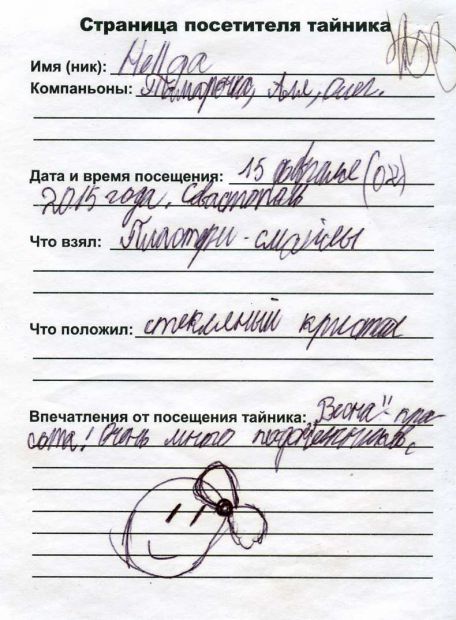 Страница посетителя тайника
Имя (ник): Нелда
Компаньоны: Аля, Олег.
Дата и время посещения: 15 февраля (02)
2015 года. Севастополь
Что взял: смайлы
Что положил: стеклянный кристалл
Впечатления от посещения тайника: Весна" кра-
сота! Очень много подснежников.